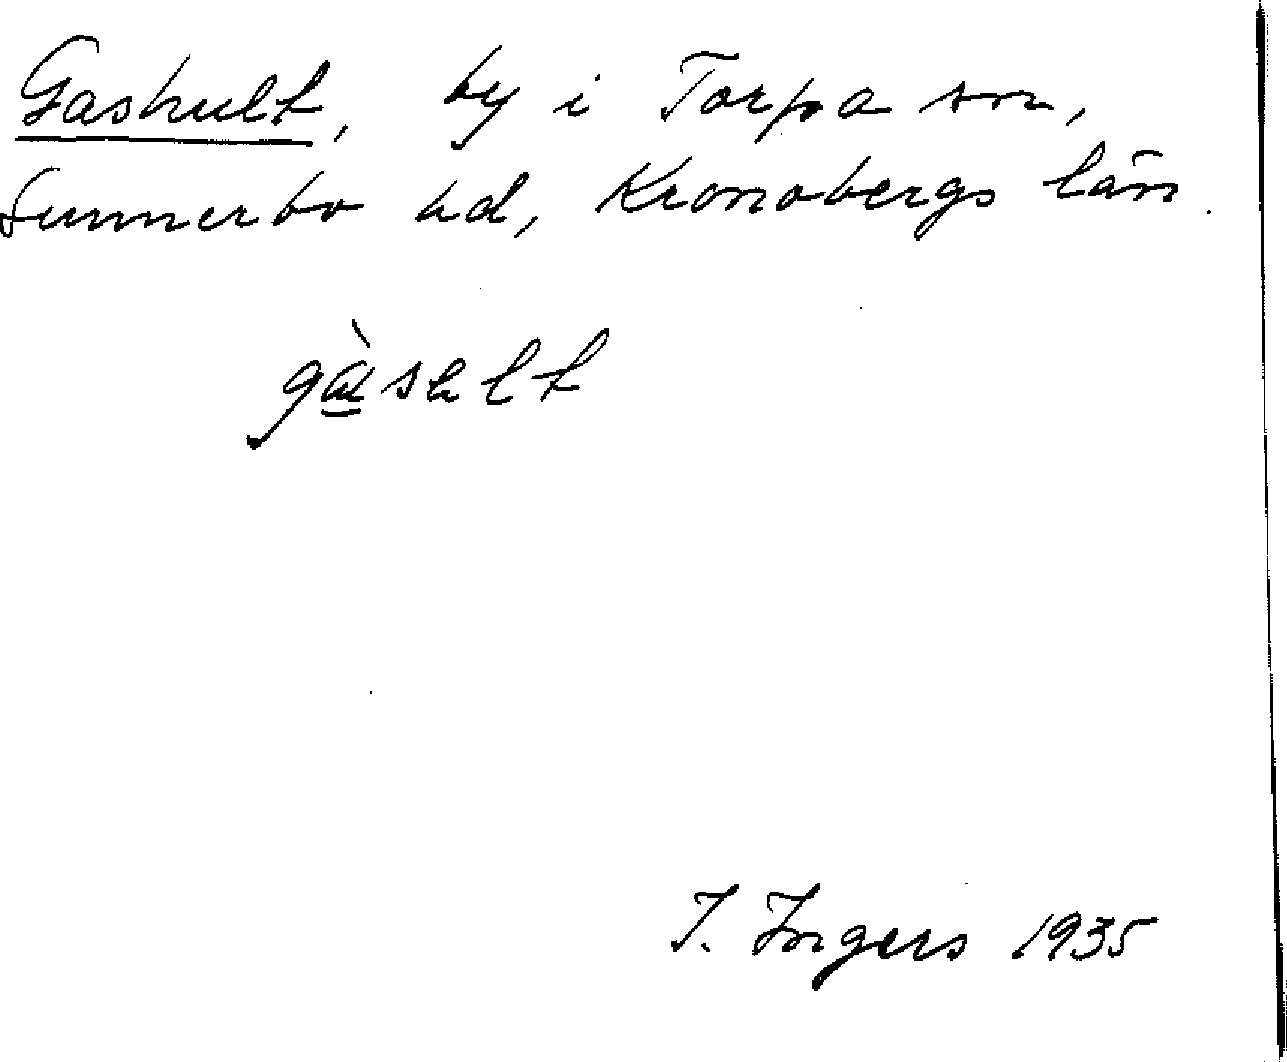 Gashult, by i Torpa sn,
Sunnerbo hd, Kronobergs län.
gàsalt
I. Ingers 1935